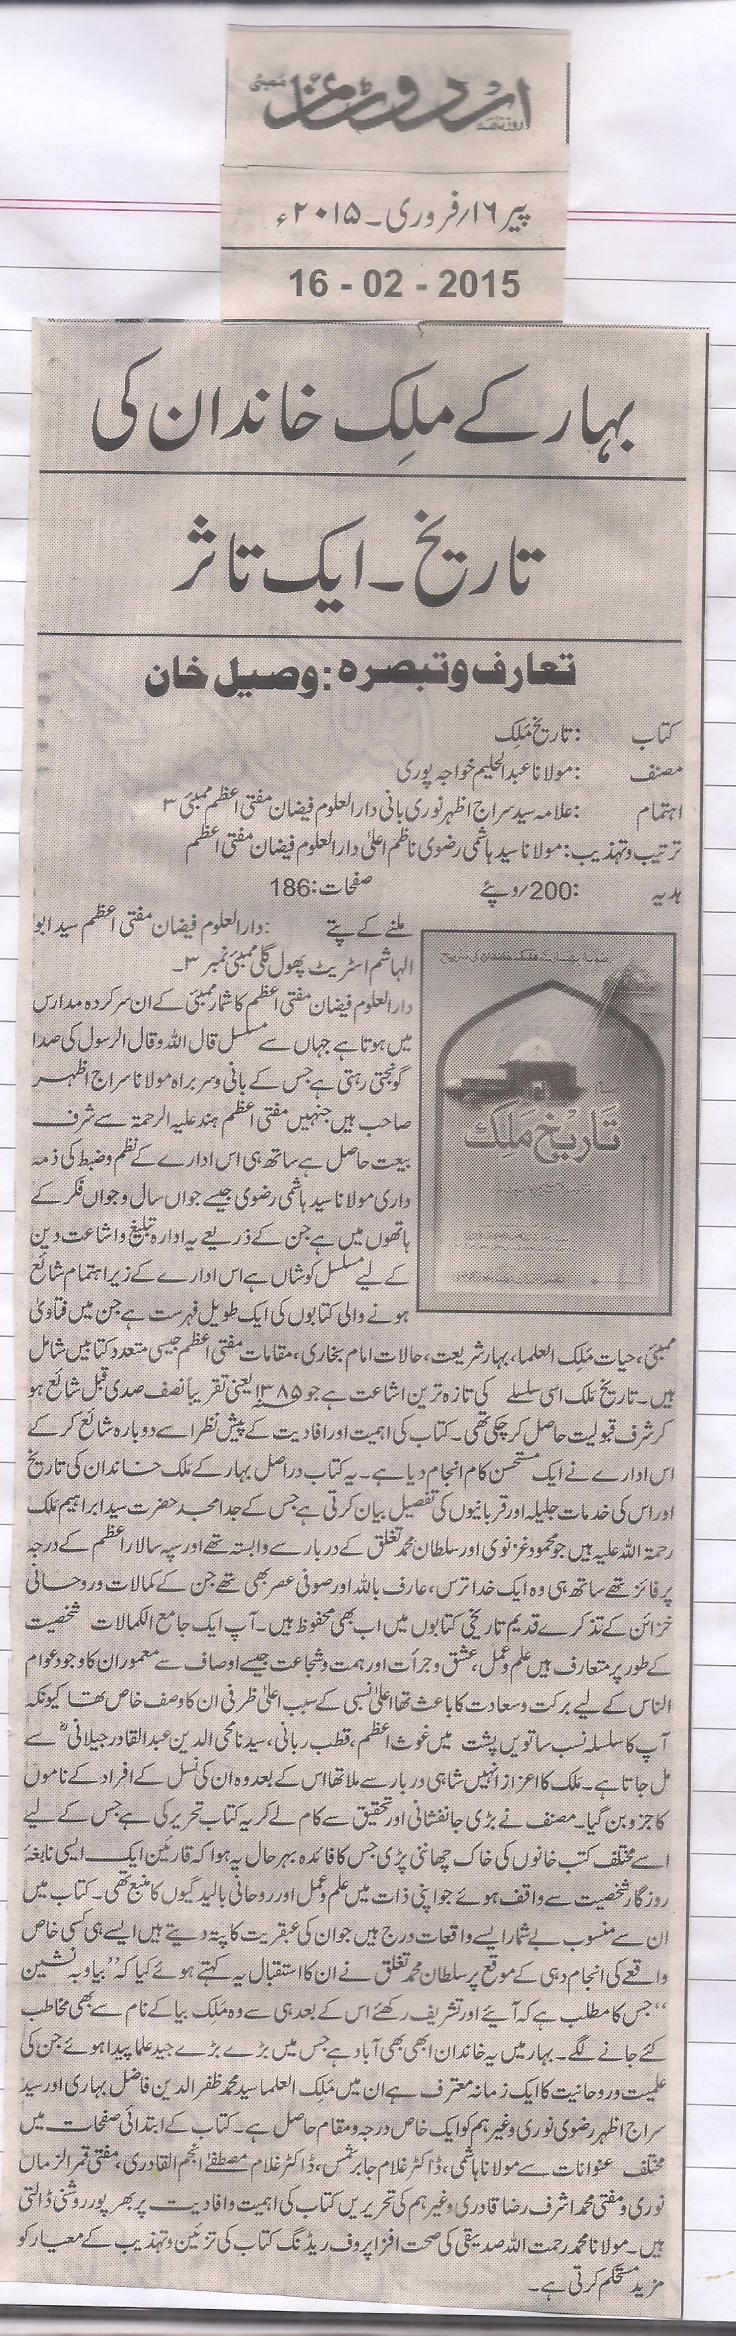 روزنامہ اردو ٹائمز ممبئی
پیر ۱۶/فروری۔۲۰۱۵ء
16 - 02 - 2015
بہار کے ملِک خاندان کی
تاریخ۔ایک تاثر
تعارف وتبصرہ:وصیل خان
کتاب :تاریخ ملِک
مصنف :مولانا عبدالحلیم خواجہ پوری
اہتمام :علامہ سید سراج اظہر نوری بانی دارالعلوم فیضان مفتی اعظم ممبئی ۳
ترتیب وتہذیب:مولانا سید ہاشمی رضوی ناظم اعلیٰ دارالعلوم فیضان مفتی اعظم
ہدیہ :200/روپئے صفحات:186
ملنے کے پتے :دارالعلوم فیضان مفتی اعظم سید ابو
الہاشم اسٹریٹ پھول گلی ممبئی نمبر ۳۔
صوبۂ بہار کے ملک خاندان کی تاریخ
تاریخ ملک
دارالعلوم فیضان مفتی اعظم کا شمار ممبئی کے ان سرکردہ مدارس
میں ہوتا ہے جہاں سے مسلسل قال اللہ وقال الرسول کی صدا
گونجتی رہتی ہے جس کے بانی وسربراہ مولانا سراج اظہر
صاحب ہیں جنہیں مفتی اعظم ہند علیہ الرحمۃ سے شرف
بیعت حاصل ہے ساتھ ہی اس ادارے کے نظم وضبط کی ذمہ
واری مولانا سید ہاشمی رضوی جیسے جواں سال وجواں فکر کے
ہاتھوں میں ہے جن کے ذریعے یہ ادارہ تبلیغ واشاعت دین
کے لیے مسلسل کوشاں ہے اس ادارے کے زیراہتمام شائع
ہونے والی کتابوں کی ایک طویل فہرست ہے جن میں فتاویٰ
ممبئی، حیات ملِک العلما، بہار شریعت، حالات امام بخاری، مقامات مفتی اعظم جیسی متعدد کتابیں شامل
ہیں۔ تاریخ ملک اسی سلسلے کی تازہ ترین اشاعت ہے جو ۱۳۸۵ یعنی تقریباً نصف صدی قبل شائع ہو
کر شرف قبولیت حاصل کر چکی تھی۔ کتاب کی اہمیت اور افادیت کے پیش نظر اسے دوبارہ شائع کر کے
اس ادارے نے ایک مستحسن کام انجام دیا ہے۔ یہ کتاب دراصل بہار کے ملک خاندان کی تاریخ
اور اس کی خدمات جلیلہ اور قربانیوں کی تفصیل بیان کرتی ہے جس کے جد امجد حضرت سید ابراہیم ملک
رحمۃ اللہ علیہ ہیں جو محمود غزنوی اور سلطان محمد تغلق کے دربار سے وابستہ تھے اور سپہ سالار اعظم کے درجہ
پر فائز تھے ساتھ ہی وہ ایک خدا ترس، عارف باللہ اور صوفی عصر بھی تھے جن کے کمالات وروحانی
خزائن کے تذکرے قدیم تاریخی کتابوں میں اب بھی محفوظ ہیں۔ آپ ایک جامع الکمالات شخصیت
کے طور پر متعارف ہیں علم وعمل، عشق وجرأت اور ہمت وشجاعت جیسے اوصاف سے معمور ان کا وجود عوام
الناس کے لیے برکت وسعادت کا باعث تھا اعلیٰ نسبی کے سبب اعلیٰ ظرفی ان کا وصف خاص تھا کیونکہ
آپ کا سلسلہ نسب ساتویں پشت میں غوث اعظم، قطب ربانی، سیدنا محی الدین عبدالقادر جیلانیؒ سے
مل جاتا ہے۔ ملک کا اعزاز انہیں شاہی دربار سے ملا تھا اس کے بعد وہ ان کی نسل کے افراد کے ناموں
کا جزو بن گیا۔ مصنف نے بڑی جانفشانی اور تحقیق سے کام لے کر یہ کتاب تحریر کی ہے جس کے لیے
اسے مختلف کتب خانوں کی خاک چھاننی پڑی جس کا فائدہ بہرحال یہ ہوا کہ قارئین ایک ایسی نابغۂ
روزگار شخصیت سے واقف ہوئے جو اپنی ذات میں علم وعمل اور روحانی بالیدگیوں کا منبع تھی۔ کتاب میں
ان سے منسوب بے شمار ایسے واقعات درج ہیں جو ان کی عبقریت کا پتہ دیتے ہیں ایسے ہی کسی خاص
واقعے کی انجام دہی کے موقع پر سلطان محمد تغلق نے ان کا استقبال یہ کہتے ہوئے کیا کہ ’’بیا وبہ نشین
‘‘ جس کا مطلب ہے کہ آیئے اور تشریف رکھئے اس کے بعد ہی سے وہ ملِک بیا کے نام سے بھی مخاطب
کئے جانے لگے۔ بہار میں یہ خاندان ابھی بھی آباد ہے جس میں بڑے بڑے جید علما پیدا ہوئے جن کی
علمیت وروحانیت کا ایک زمانہ معترف ہے ان میں ملِک العلما سید محمد ظفرالدین فاضل بہاری اور سید
سراج اظہر رضوی نوری وغیرہم کو ایک خاص درجہ ومقام حاصل ہے۔ کتاب کے ابتدائی صفحات میں
مختلف عنوانات سے مولانا ہاشمی، ڈاکٹر غلام جابر شمس، ڈاکٹر غلام مصطفےٰ انجم القادری، مفتی قمرالزماں
نوری ومفتی محمد اشرف رضا قادری وغیرہم کی تحریریں کتاب کی اہمیت وافادیت پر بھرپور روشنی ڈالتی
ہیں۔ مولانا محمد رحمت اللہ صدیقی کی صحت افزا پروف ریڈنگ کتاب کی تزئین وتہذیب کے معیار کو
مزید مستحکم کرتی ہے۔